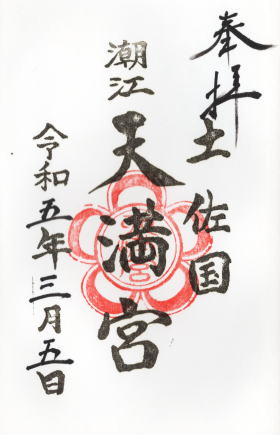 奉拝
土佐国
潮江
天満宮
令和五年三月五日